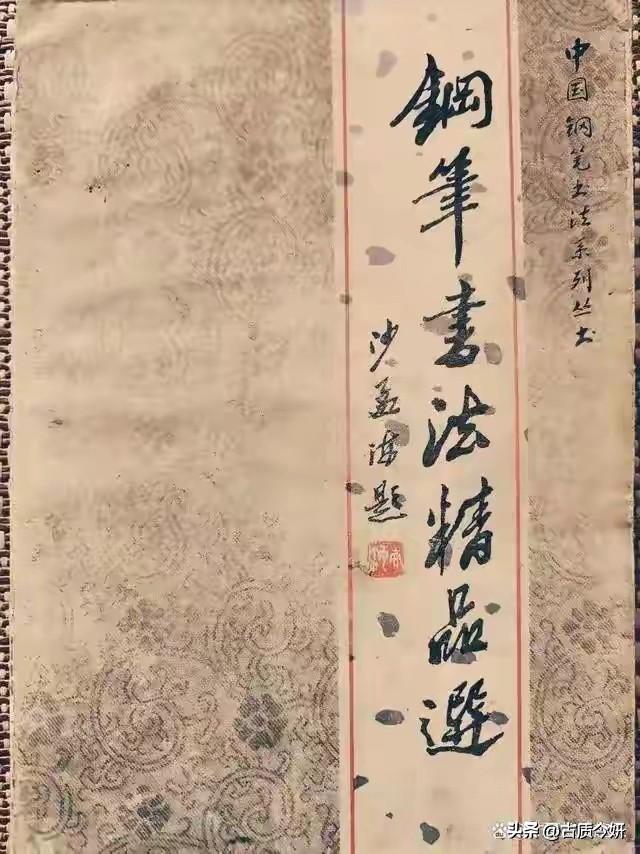 中国钢笔书法系列丛书
鋼筆書法精品選
沙孟海題
头条 @古质今妍